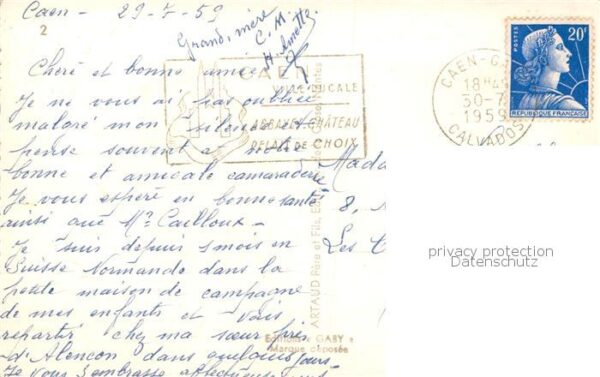 Caen - 29-7-59
2
Grand-mère
C. M.
H. Amette
Chère et bonne amie
Je ne vous ai pas oubliée
malgré mon silence et
pense souvent à notre
bonne et amicale camaraderie
Je vous espère en bonne santé
ainsi que Mr Cailloux -
Je suis depuis 1 mois en
Suisse Normande dans la
petite maison de campagne
de mes enfants et vais
repartir chez ma sœur près
d'Alençon dans quelques jours -
Je vous embrasse affectueusement
CAEN
VILLE DUCALE
ABBAYES CHÂTEAU
RELAIS DE CHOIX
CAEN-G
18H45
30-7
1959
CALVADOS
POSTES
20F
REPUBLIQUE FRANÇAISE
Mada
8,
Les
ARTAUD Père et Fils, Éd
Nantes
Editions "GABY"
Marque déposée
privacy protection
Datenschutz